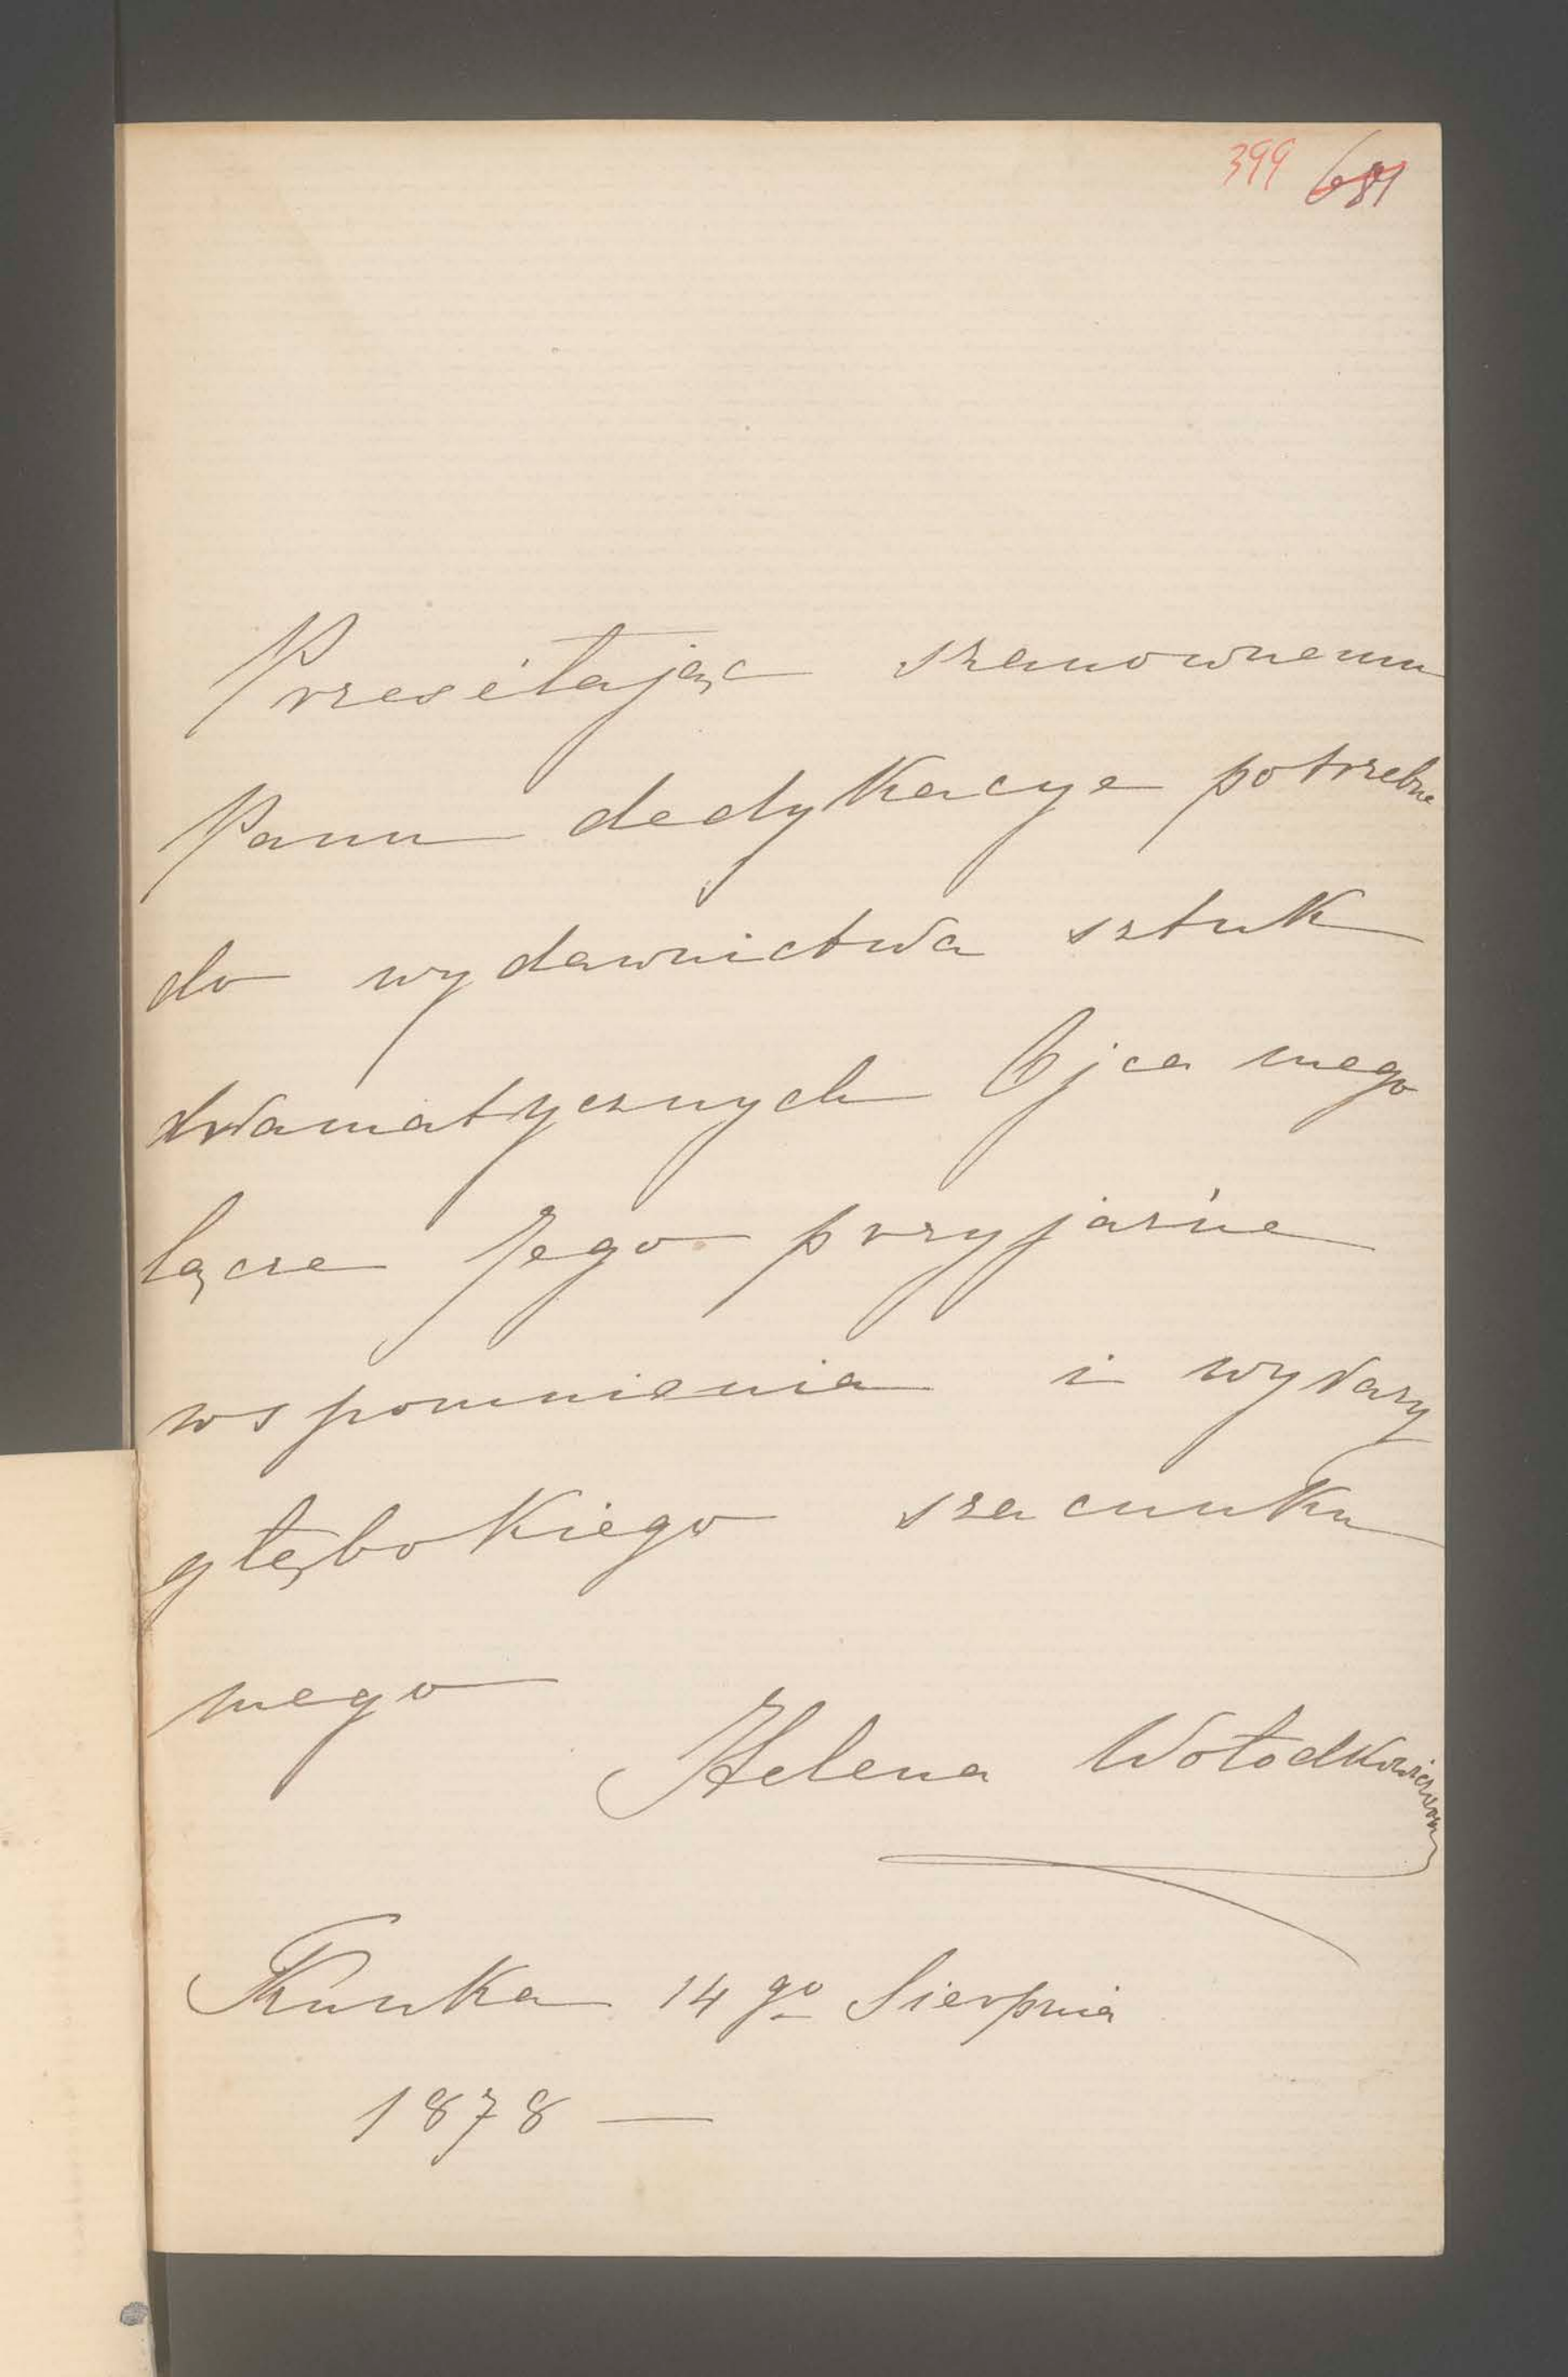 399 681
Przesiłając szanownemu
Panu dedykacye potrzebne
do wydawnictwa sztuk
dramatycznych Ojca mego
łącze Jego przyjazńe
wspomnienia i wyrazy
głębokiego szacunku
mego
Helena Wołodkowiczowa
14 go Sierpnia
1878 —